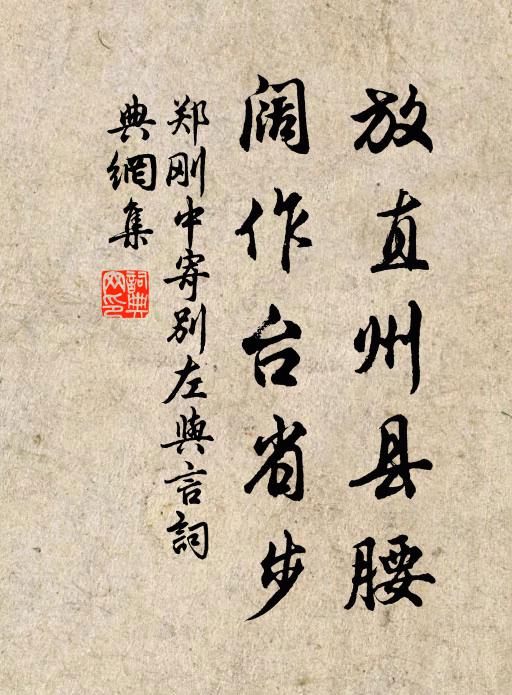 放直州县腰
阔作台省步
郑刚中寄别左与言詞
典網集
詞典网印